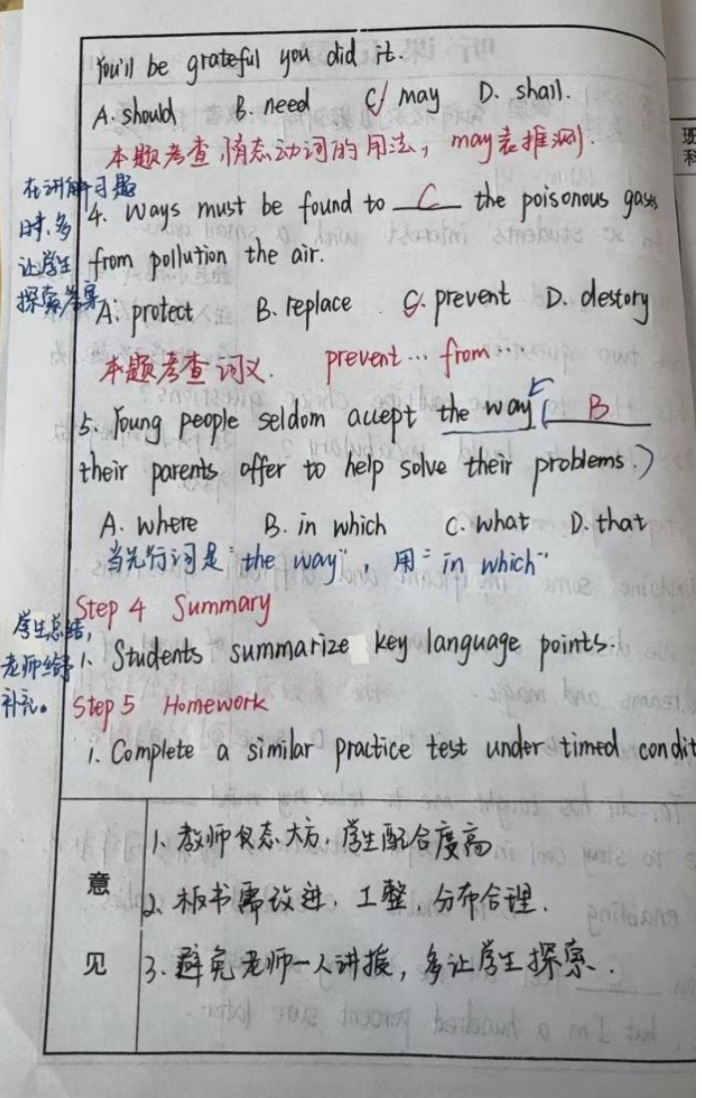 You'll be grateful you did it.
A. should B. need C. may D. shall.
本题考查情态动词的用法，may表推测.
在讲解习题
时,多
让学生
探索答案
4. Ways must be found to C the poisonous gases
from pollution the air.
A. protect B. replace C. prevent D. destory
本题考查词义. prevent... from...
5. Young people seldom accept the way ( B
their parents offer to help solve their problems.)
A. where B. in which C. what D. that
当先行词是"the way", 用"in which"
Step 4 Summary
学生总结,
老师给予
补充。
1. Students summarize key language points.
Step 5 Homework
1. Complete a similar practice test under timed condit
意见
1、教师仪态大方,学生配合度高
2、板书需改进,工整,分布合理.
3、避免老师一人讲授,多让学生探索.
班
科